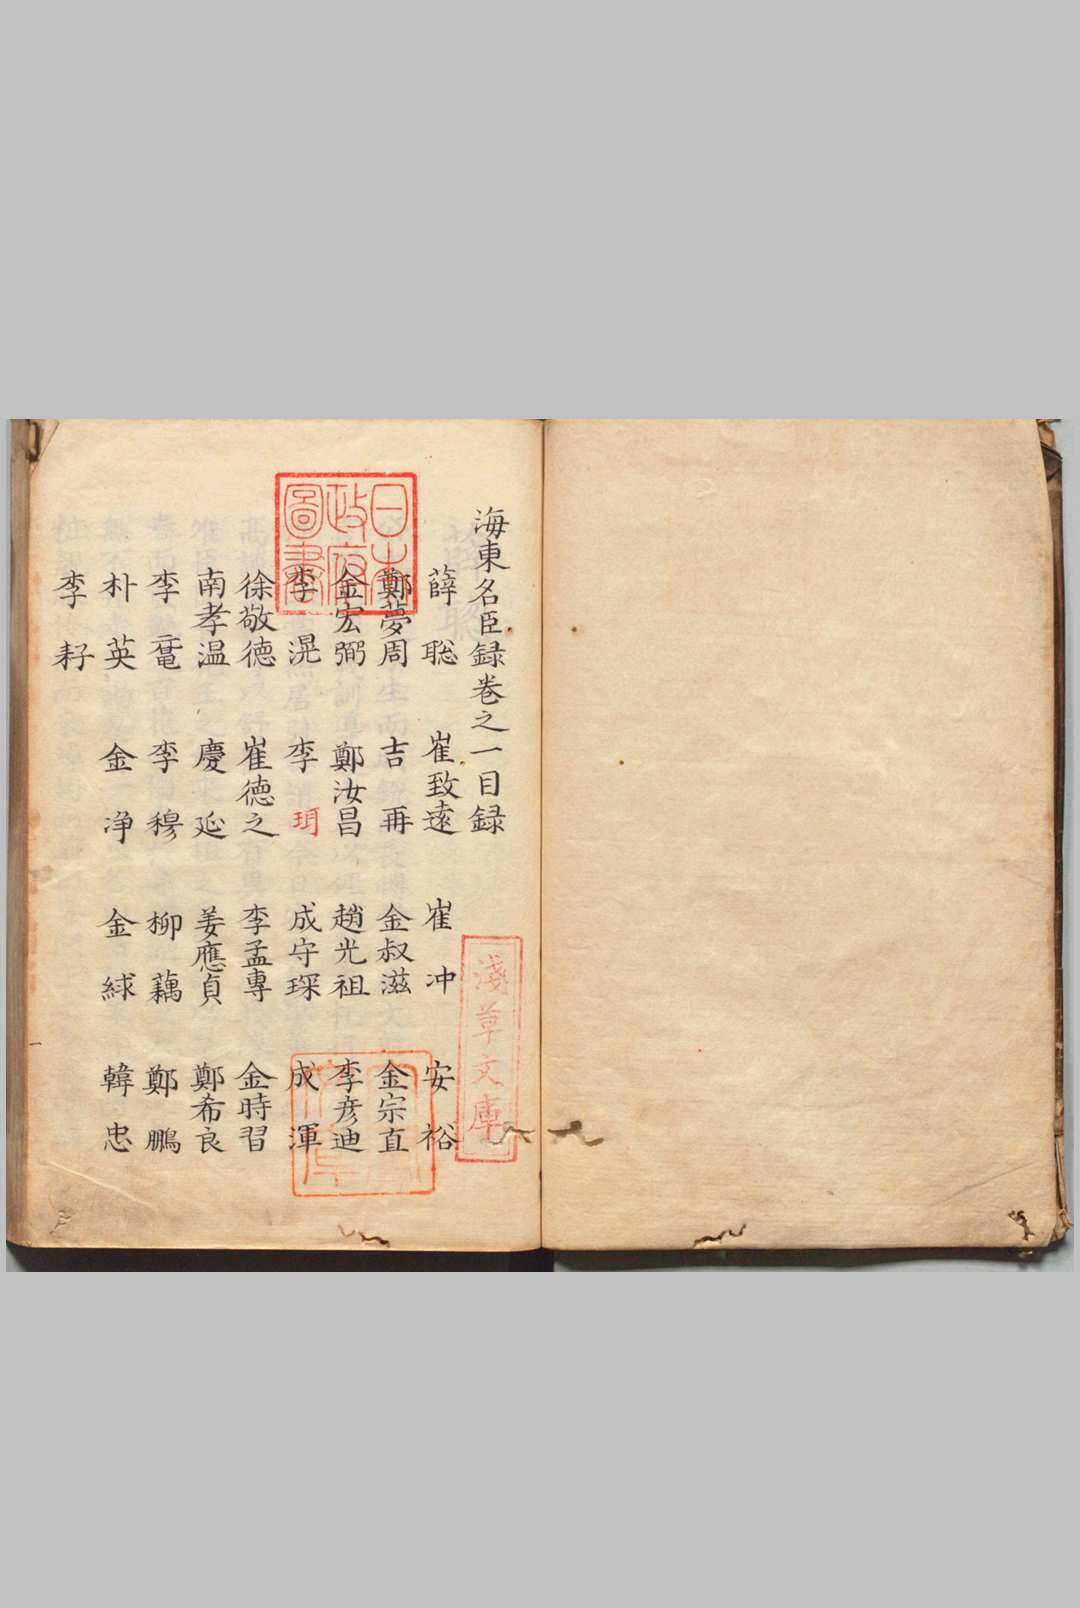 海東名臣録卷之一目録
薛聡 崔致遠 崔冲 安裕
鄭夢周 吉再 金叔滋 金宗直
金宏弼 鄭汝昌 趙光祖 李彦迪
李滉 李珥 成守琛 成渾
徐敬德 崔德之 李孟專 金時習
南孝温 慶延 姜應貞 鄭希良
李黿 李穆 柳藕 鄭鵬
朴英 金净 金絿 韓忠
李耔
日本
政府
圖書
淺草文庫